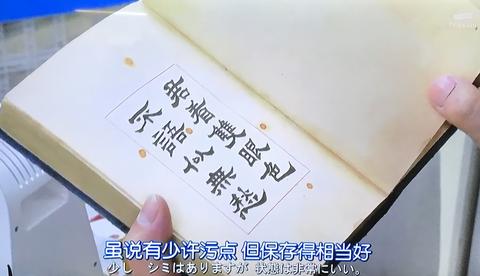 君看雙眼色
不語似無愁
虽说有少许污点 但保存得相当好
少し シミはありますが 状態は非常にいい。